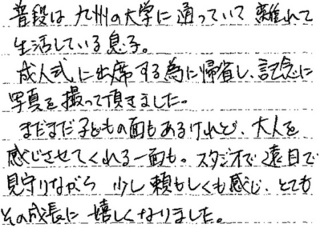 普段は九州の大学に通っていて 離れて
生活している息子。
成人式に出席する為に帰省し、記念に
写真を撮って頂きました。
まだまだ子どもの面もあるけれど、大人を
感じさせてくれる一面も。スタジオで遠目で
見守りながら 少し頼もしくも感じ、とても
その成長に 嬉しくなりました。